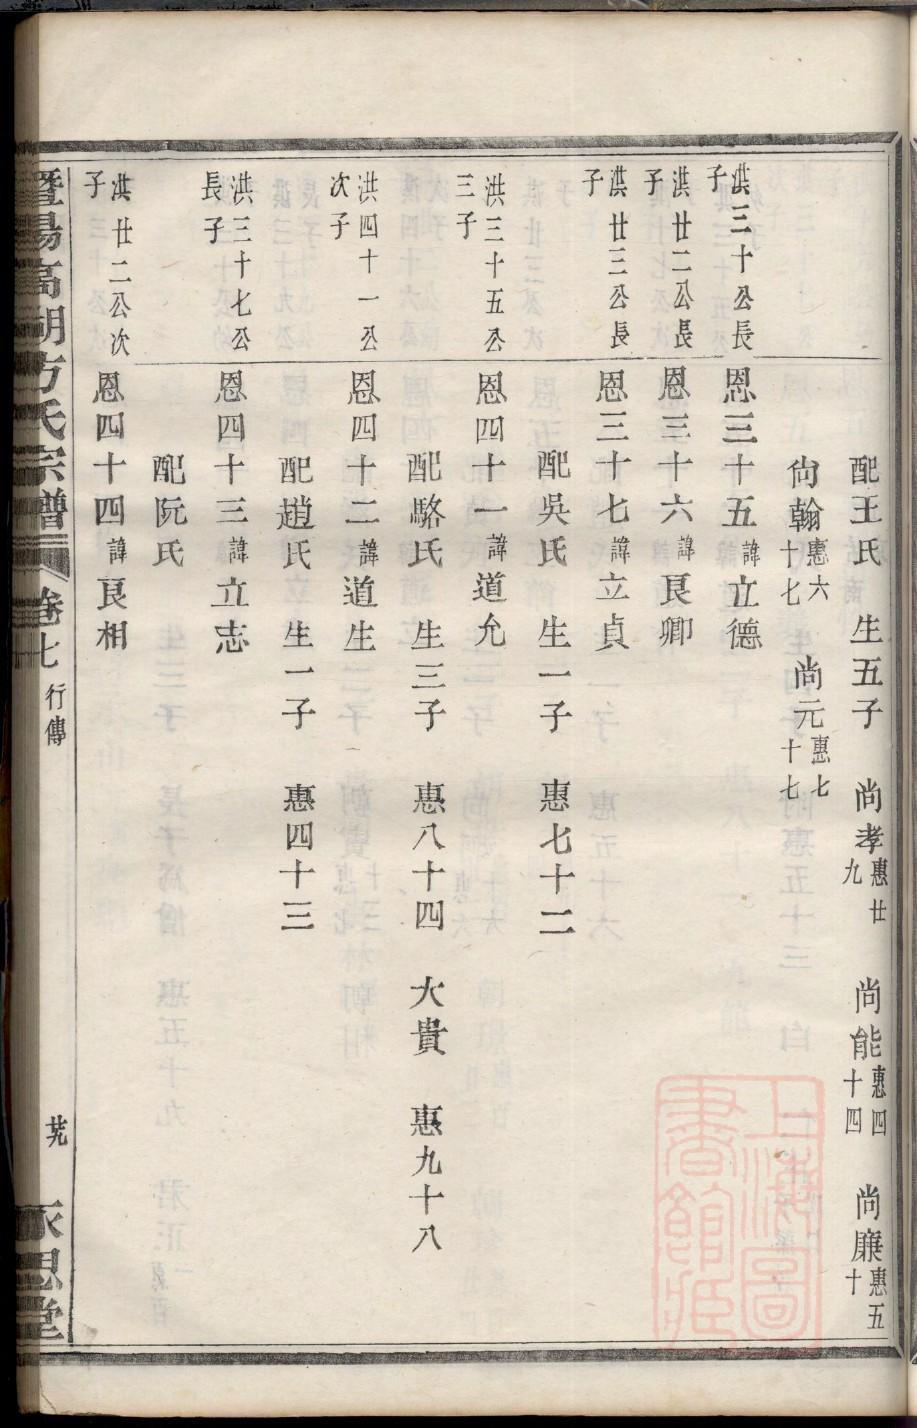 配王氏　生五子　尚孝惠廿九　尚能惠四十四　尚廉惠五十
尚翰惠六十七　尚元惠七十七
洪三十公長子　恩三十五諱立德
洪廿二公長子　恩三十六諱良卿
洪廿三公長子　恩三十七諱立貞
配吳氏　生一子　惠七十二
洪三十五公三子　恩四十一諱道允
配駱氏　生三子　惠八十四　大貴　惠九十八
洪四十一公次子　恩四十二諱道生
配趙氏　生一子　惠四十三
洪三十七公長子　恩四十三諱立志
配阮氏
洪廿二公次子　恩四十四諱良相
暨陽高湖方氏宗譜　卷七　行傳　廿九　永思堂
上海圖書館藏